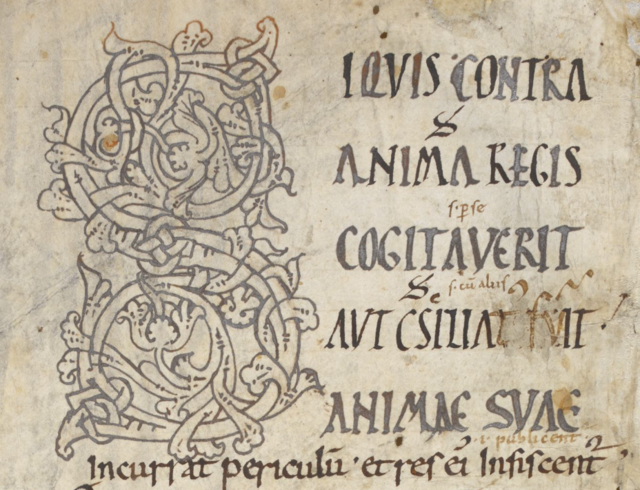 SIQVIS CONTRA
ANIMA REGIS
s. p se
COGITAVERIT
s. cū aliis
AVT CSILIAT FVIT
ANIMAE SVAE
i. publicent
Incurrat periculū · et res ei Infiscent